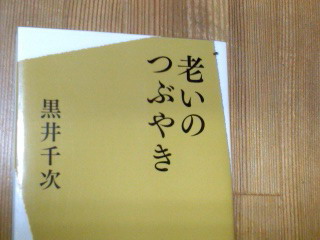 老いの
つぶやき
黒井千次